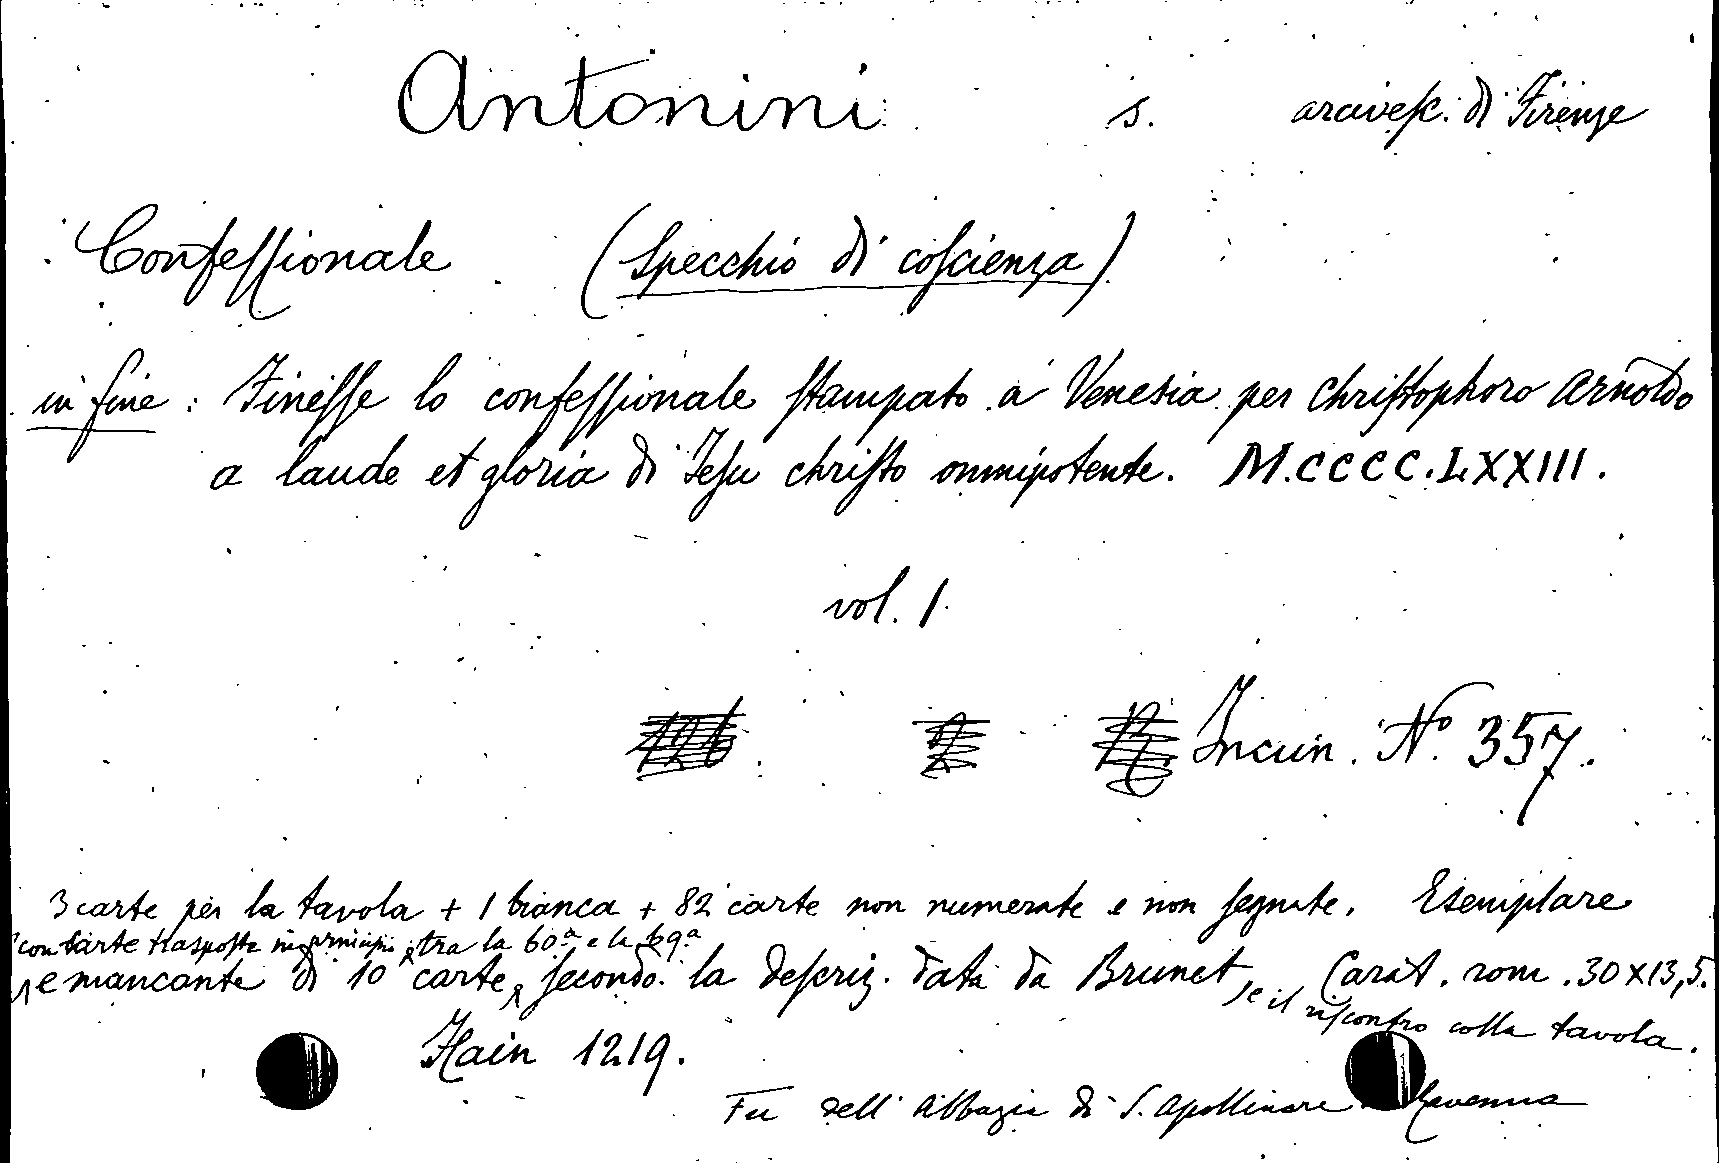 Antonini s. arcivesc. di Firenze
Confessionale (Specchio di coscienza)
in fine: Finisse lo confessionale stampato a Venesia per Christophoro Arnoldo
a laude et gloria di Iesu christo omnipotente. M.CCCC.LXXIII.
vol. 1
Incun. No. 357.
3 carte per la tavola + 1 bianca + 82 carte non numerate e non segnate. Esemplare
con carte trasposte in principio e tra la 60a e la 69a
e mancante di 10 carte, secondo la descriz. data da Brunet, Carat. rom. 30x13,5.
e il riscontro colla tavola.
Hain 1219.
Fu dell' Abbazia di S. Apollinare Ravenna